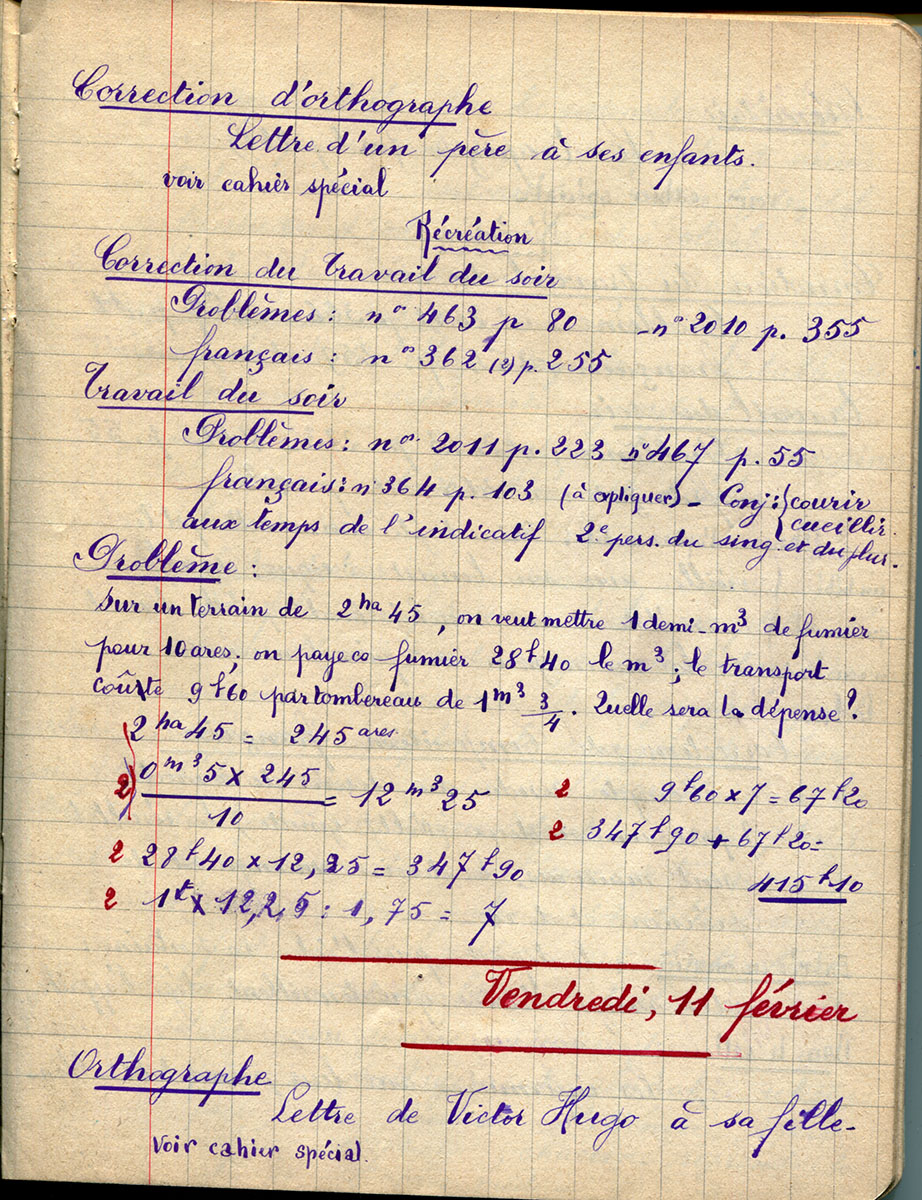 Correction d'orthographe
Lettre d'un père à ses enfants.
voir cahier spécial
Récréation
Correction du travail du soir
Problèmes : n° 463 p 80 - n° 2010 p. 355
français : n° 362 (2) p. 255
Travail du soir
Problèmes : n° 2011 p. 223 n° 467 p. 55
français : n° 364 p. 103 (à expliquer) - Conj : { courir
cueillir
aux temps de l'indicatif 2e pers. du sing. et du plur.
Problème :
Sur un terrain de 2 ha 45, on veut mettre 1 demi-m³ de fumier
pour 10 ares ; on paye ce fumier 28 f 40 le m³ ; le transport
coûte 9 f 60 par tombereau de 1 m³ 3/4. Quelle sera la dépense ?
2 ha 45 = 245 ares
2) 0 m³ 5 x 245 / 10 = 12 m³ 25
2 28 f 40 x 12,25 = 347 f 90
2 1t x 12,25 : 1,75 = 7
2 9 f 60 x 7 = 67 f 20
2 347 f 90 + 67 f 20 =
415 f 10
Vendredi, 11 février
Orthographe
Lettre de Victor Hugo à sa fille -
Voir cahier spécial.